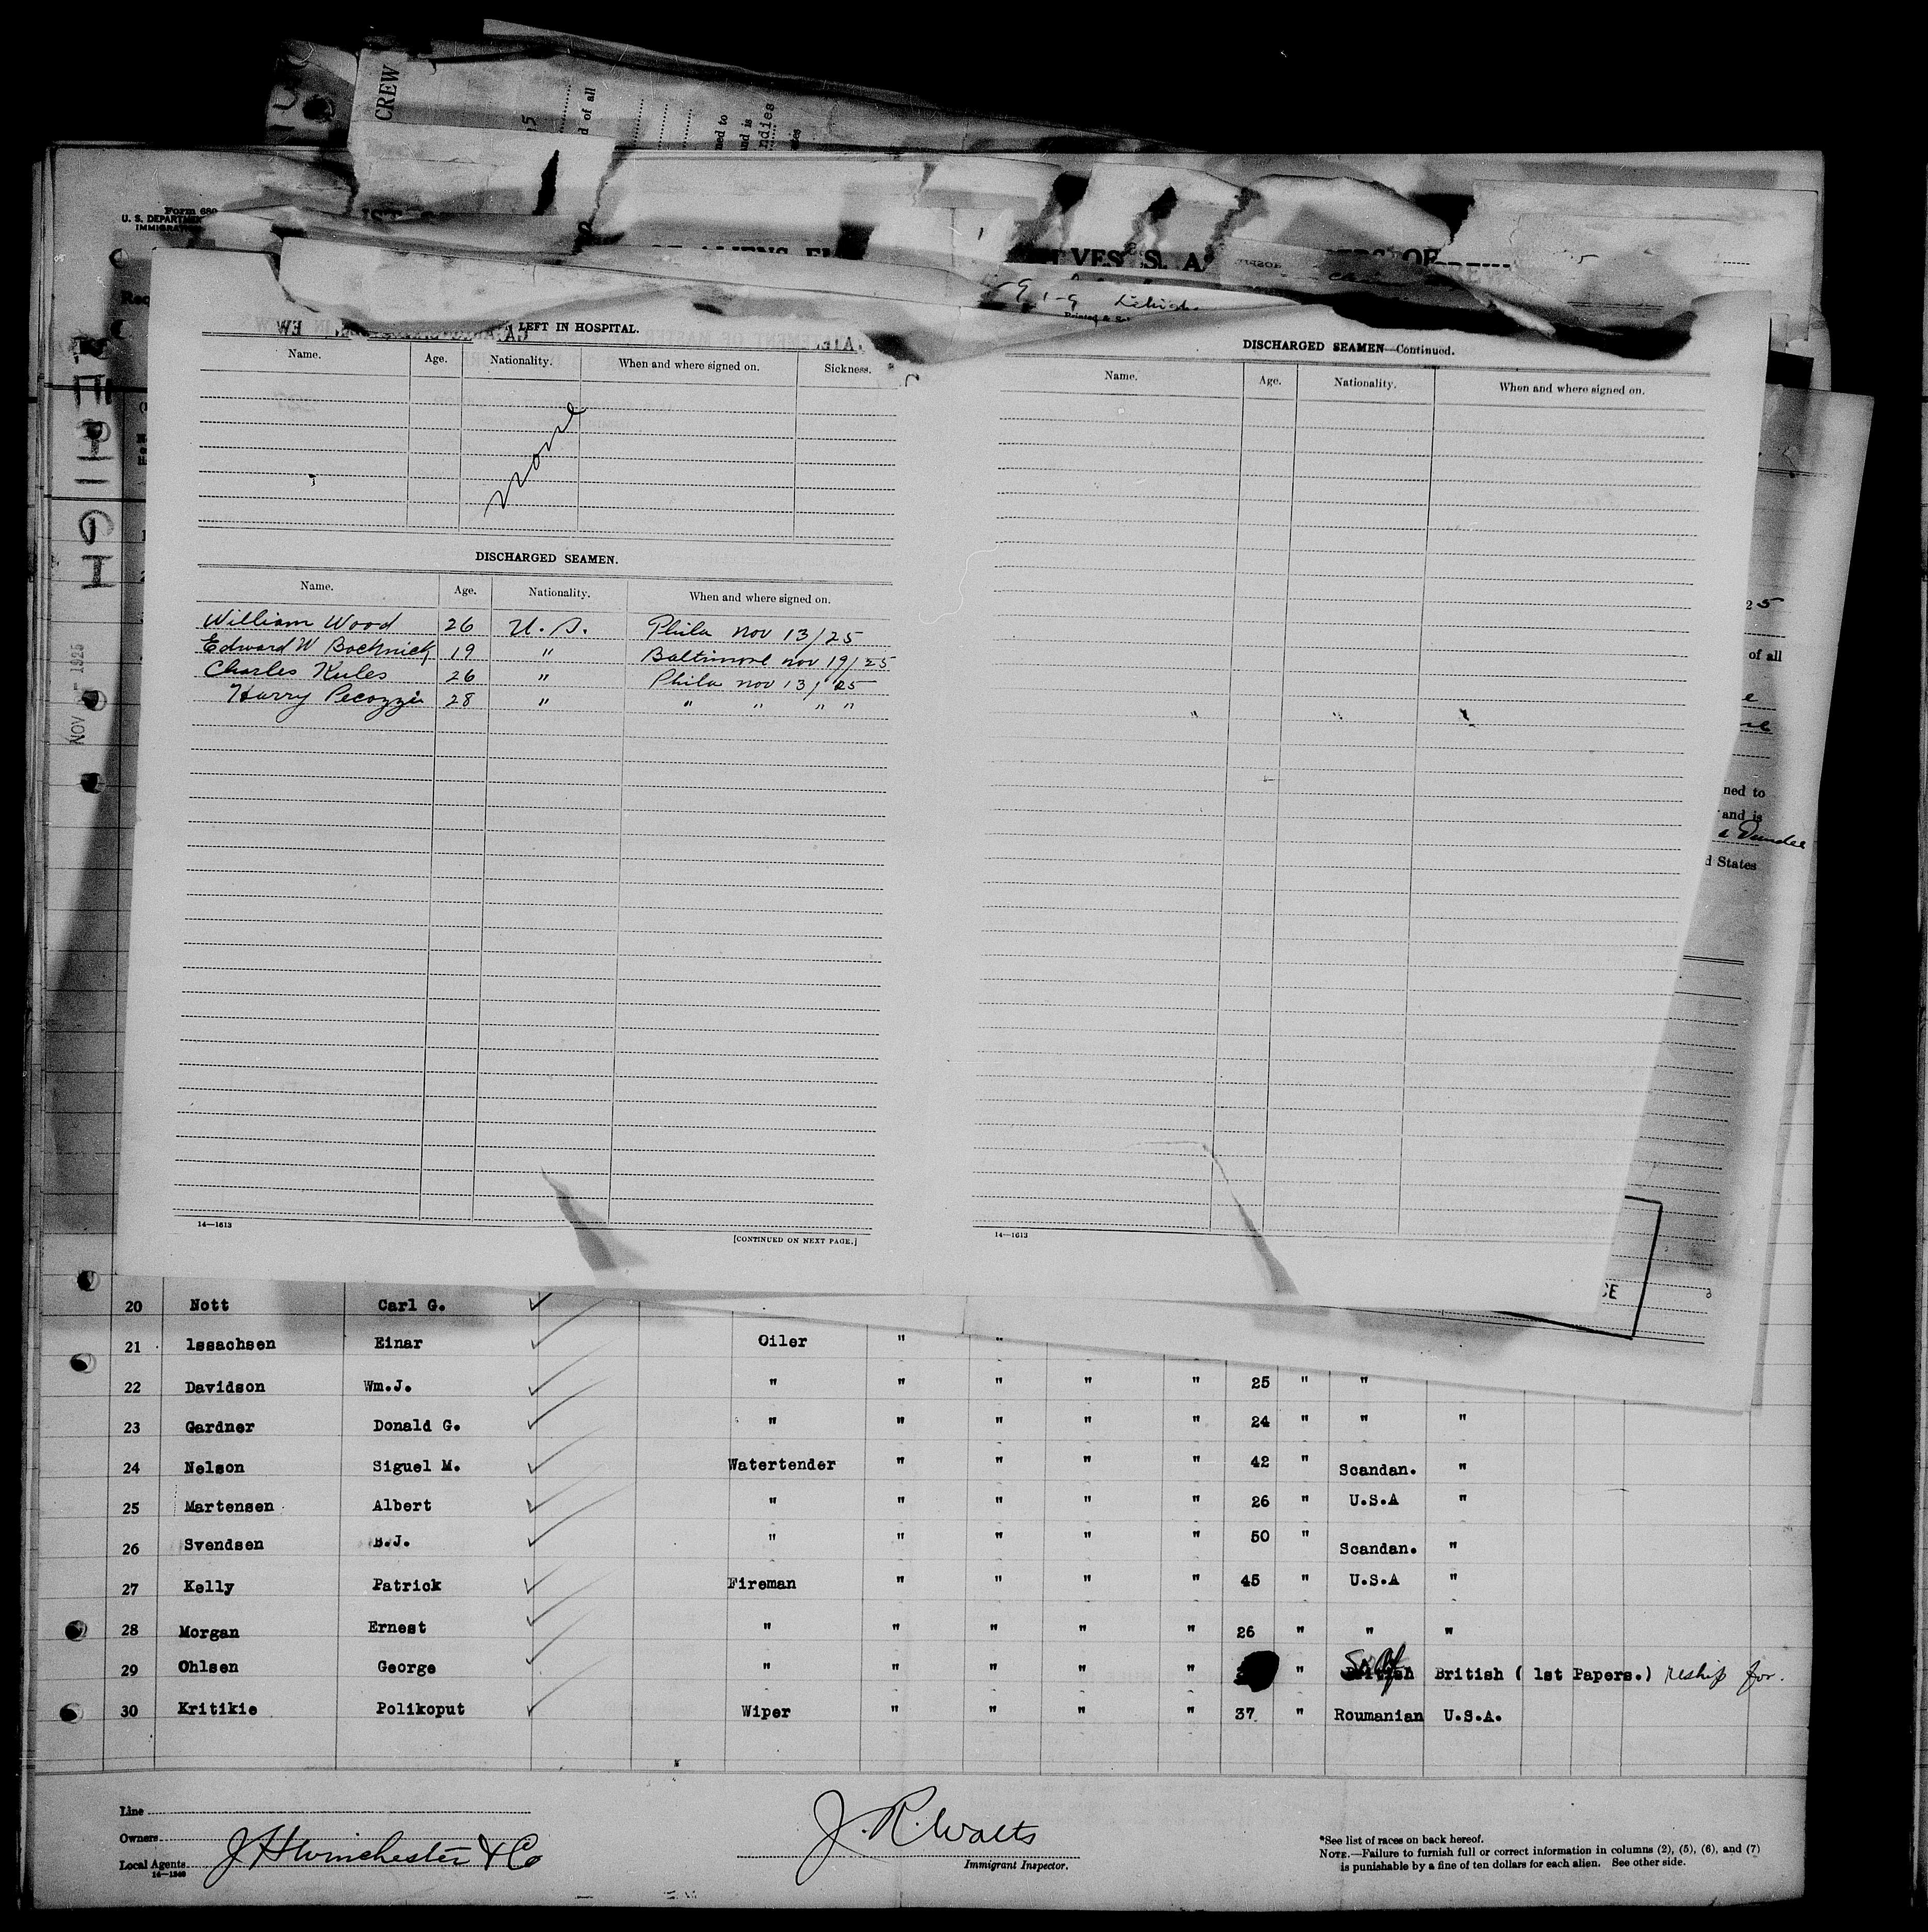 CREW
d of all
ned to
and is
ndies
Form 680
U. S. DEPARTME
IMMIGRA
LEHIGH
NOV 1925
Lehigh
LEFT IN HOSPITAL.
Name. Age. Nationality. When and where signed on. Sickness.
None
DISCHARGED SEAMEN.
Name. Age. Nationality. When and where signed on.
William Wood 26 U.S. Phila Nov 13/25
Edward W Bochnick 19 " Baltimore Nov 19/25
Charles Kules 26 " Phila Nov 13/25
Harry Pecozzi 28 " " " " "
14—1613
[CONTINUED ON NEXT PAGE.]
DISCHARGED SEAMEN—Continued.
Name. Age. Nationality. When and where signed on.
14—1613
25
of all
ned to
and is
a Dundee
d States
CE
20 Nott Carl G.
21 lssachsen Einar Oiler " "
22 Davidson Wm.J. " " " " " 25 " "
23 Gardner Donald G. " " " " " 24 " " "
24 Nelson Siguel M. Watertender " " " " 42 " Scandan. "
25 Martensen Albert " " " " " 26 " U.S.A "
26 Svendsen B.J. " " " " " 50 " Scandan. "
27 Kelly Patrick Fireman " " " " 45 " U.S.A "
28 Morgan Ernest " " " " " 26 " " "
29 Ohlsen George " " " " " " British British ( 1st Papers.) reship for.
30 Kritikie Polikoput Wiper " " " " 37 " Roumanian U.S.A.
Line
Owners
Local Agents J H Winchester & Co
14—1240
J. R. Walts
Immigrant Inspector.
*See list of races on back hereof.
NOTE.—Failure to furnish full or correct information in columns (2), (5), (6), and (7)
is punishable by a fine of ten dollars for each alien. See other side.